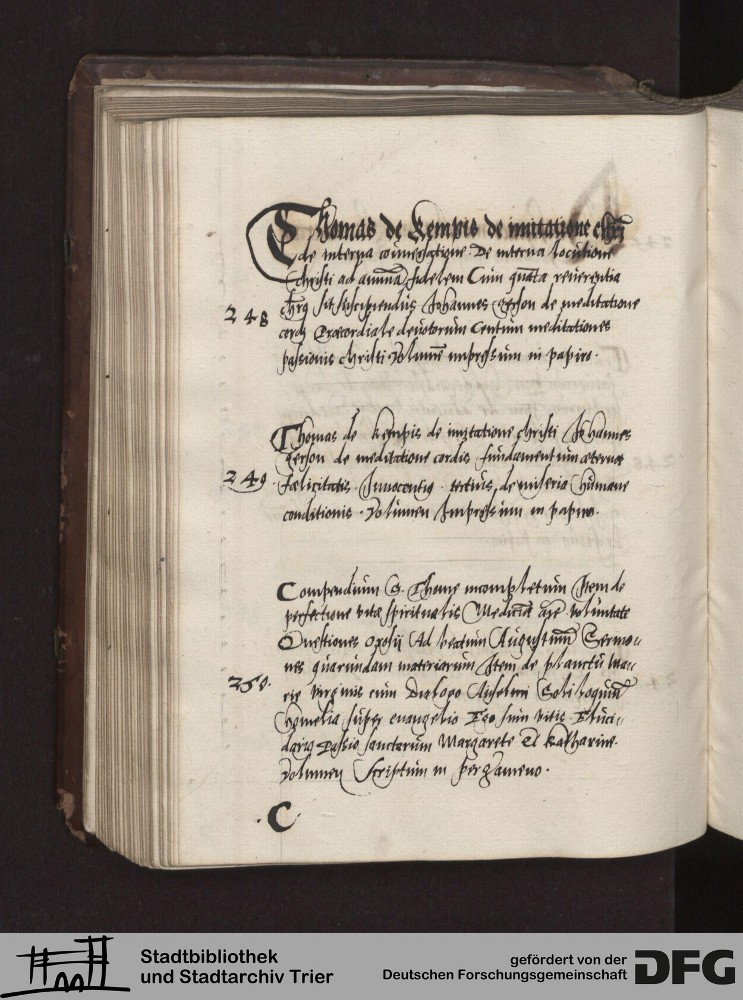 Thomas de Kempis de imitatione chri
de interna conuersatione. De interna locutione
Christi ad animā fidelem Cum quāta reuerentia
chrs sit suscipiendus Johannes gerson de meditatione
cordis Præcordiale deuotorum Centum meditationes
248
passionis christi Volumē impressum in papiro.
Thomas de Kempis de imitatione christi Johannes
gerson de meditatione cordis fundamentum æternæ
249
fælicitatis. Innocentius tertius, de miseria humane
conditionis. Volumen Impressum in papiro.
Compendium S. Thome incompletum Item de
perfectione vitæ spiritualis Medicina aīe voluntate
Questiones Orosij Ad beatum Augustinū Sermo=
nes quarundam materiarum Item de planctu Ma=
250.
rie virginis cum Dialogo Anselmi Soliloquiū
Homelia super euangelio Ego sum vitis Eluci=
darius Passio sanctarum Margarete Et Katharine.
Volumen Scriptum in pergameno.
.C.
Stadtbibliothek
und Stadtarchiv Trier
gefördert von der
Deutschen Forschungsgemeinschaft
DFG